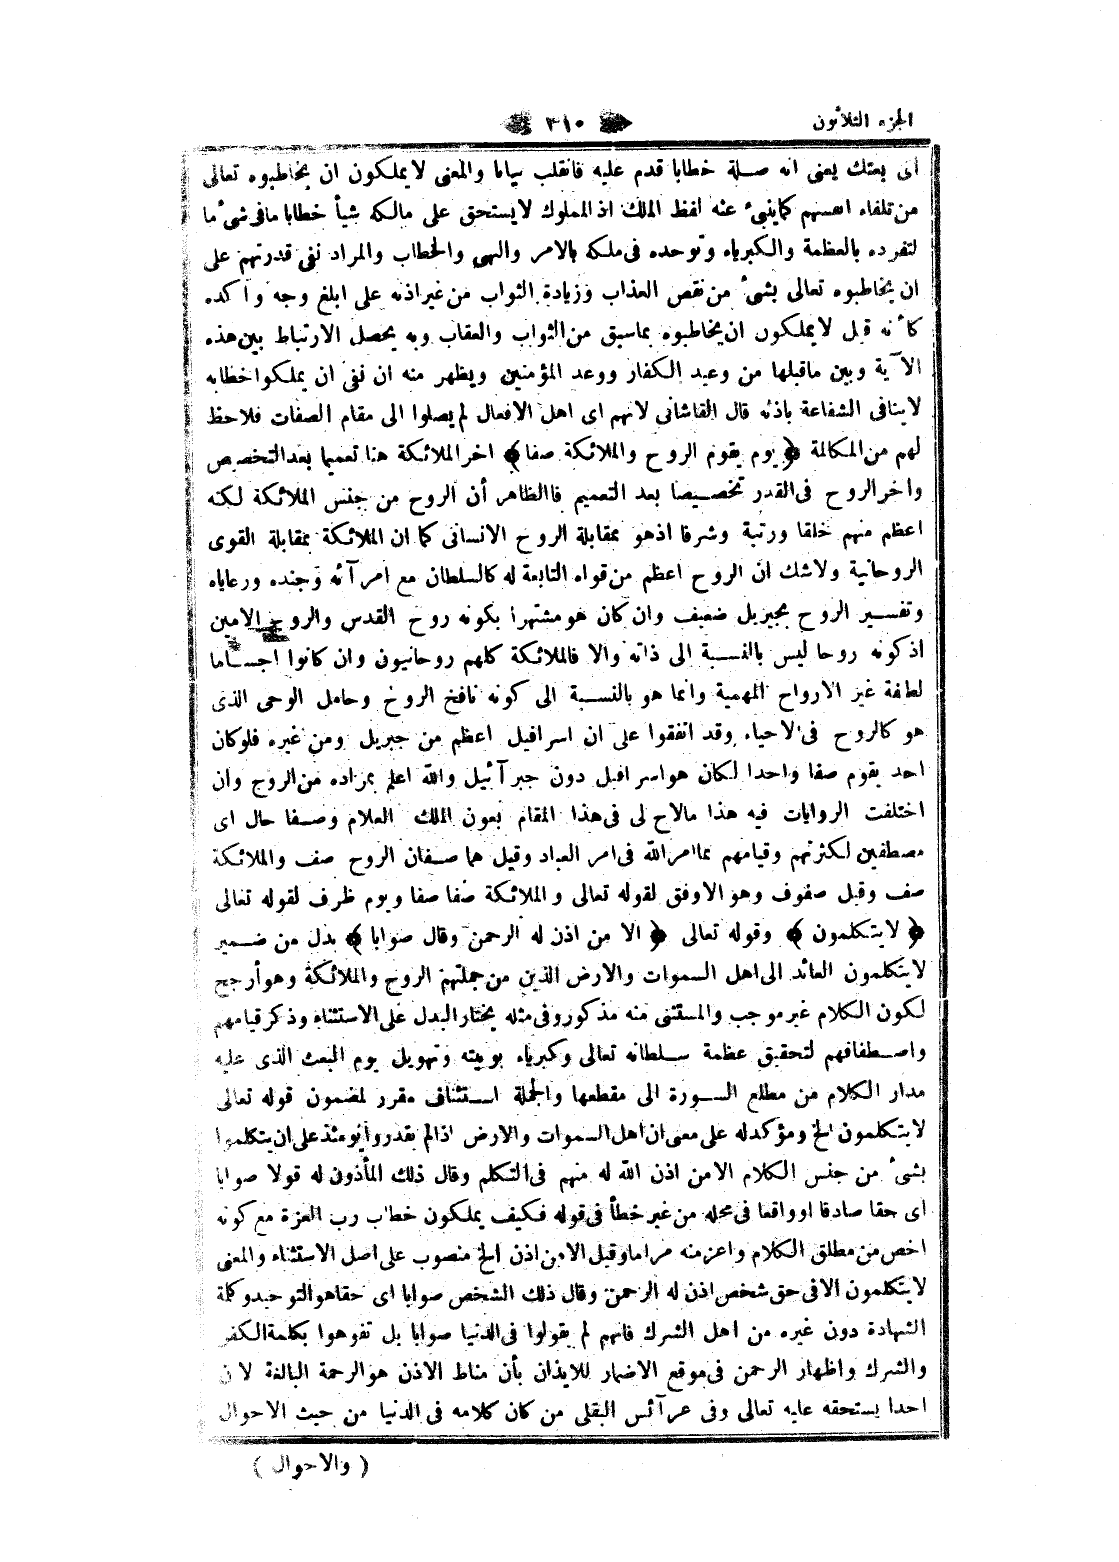 الجزء الثلاثون
٣١٠
اى بعتك يعنى انه صلة خطابا قدم عليه فانقلب بيانا والمعنى لايملكون ان يخاطبوه تعالى
من تلقاء انفسهم كماينبئ عنه لفظ الملك اذ المملوك لايستحق على مالكه شيأ خطابا مافى شئ ما
لتفرده بالعظمة والكبرياء وتوحده فى ملكه بالامر والنهى والخطاب والمراد نفى قدرتهم على
ان يخاطبوه تعالى بشئ من نقص العذاب وزيادة الثواب من غير اذنه على ابلغ وجه وآكده
كأنه قيل لايملكون ان يخاطبوه بماسبق من الثواب والعقاب وبه يحصل الارتباط بين هذه
الآية وبين ماقبلها من وعيد الكفار ووعد المؤمنين ويظهر منه ان نفى ان يملكوا خطابه
لاينافى الشفاعة باذنه قال القاشانى لانهم اى اهل الافعال لم يصلوا الى مقام الصفات فلاحظ
لهم من المكالمة ﴿ يوم يقوم الروح والملائكة صفا ﴾ اخر الملائكة هنا تعميما بعد التخصيص
واخر الروح فى القدر تخصيصا بعد التعميم فالظاهر أن الروح من جنس الملائكة لكنه
اعظم منهم خلقا ورتبة وشرفا اذهو بمقابلة الروح الانسانى كما ان الملائكة بمقابلة القوى
الروحانية ولاشك ان الروح اعظم من قواه التابعة له كالسلطان مع امرآئه وجنده ورعاياه
وتفسير الروح بجبريل ضعيف وان كان هو مشتهرا بكونه روح القدس والروح الامين
اذ كونه روحا ليس بالنسبة الى ذاته والا فالملائكة كلهم روحانيون وان كانوا اجساما
لطافة غير الارواح المهمية وانما هو بالنسبة الى كونه نافخ الروح وحامل الوحى الذى
هو كالروح فى الاحياء وقد اتفقوا على ان اسرافيل اعظم من جبريل ومن غيره فلوكان
احد يقوم صفا واحدا لكان هو اسرافيل دون جبرآئيل والله اعلم بمراده من الروح وان
اختلفت الروايات فيه هذا مالاح لى فى هذا المقام بعون الملك العلام وصفا حال اى
مصطفين لكثرتهم وقيامهم بما امر الله فى امر العباد وقيل هما صفان الروح صف والملائكة
صف وقيل صفوف وهو الاوفق لقوله تعالى والملائكة صفا صفا ويوم ظرف لقوله تعالى
﴿ لايتكلمون ﴾ وقوله تعالى ﴿ الا من اذن له الرحمن وقال صوابا ﴾ بدل من ضمير
لايتكلمون العائد الى اهل السموات والارض الذين من جملتهم الروح والملائكة وهو أرجح
لكون الكلام غير موجب والمستثنى منه مذكور وفى مثله يختار البدل على الاستثناء وذكر قيامهم
واصطفافهم لتحقيق عظمة سلطانه تعالى وكبرياء بوبيته وتهويل يوم البعث الذى عليه
مدار الكلام من مطلع السورة الى مقطعها والجملة استئناف مقرر لمضمون قوله تعالى
لايتكلمون الخ ومؤكد له على معنى ان اهل السموات والارض اذالم يقدروا يومئذ على ان يتكلموا
بشئ من جنس الكلام الا من اذن الله له منهم فى التكلم وقال ذلك المأذون له قولا صوابا
اى حقا صادقا او واقعا فى محله من غير خطأ فى قوله فكيف يملكون خطاب رب العزة مع كونه
اخص من مطلق الكلام واعز منه مراما وقيل الا من اذن الخ منصوب على اصل الاستثناء والمعنى
لايتكلمون الا فى حق شخص اذن له الرحمن وقال ذلك الشخص صوابا اى حقا هو التوحيد وكلمة
الشهادة دون غيره من اهل الشرك فانهم لم يقولوا فى الدنيا صوابا بل تفوهوا بكلمة الكفر
والشرك واظهار الرحمن فى موقع الاضمار للايذان بأن مناط الاذن هو الرحمة البالغة لا ان
احدا يستحقه عليه تعالى وفى عرآئس البقلى من كان كلامه فى الدنيا من حيث الاحوال
( والاحوال )